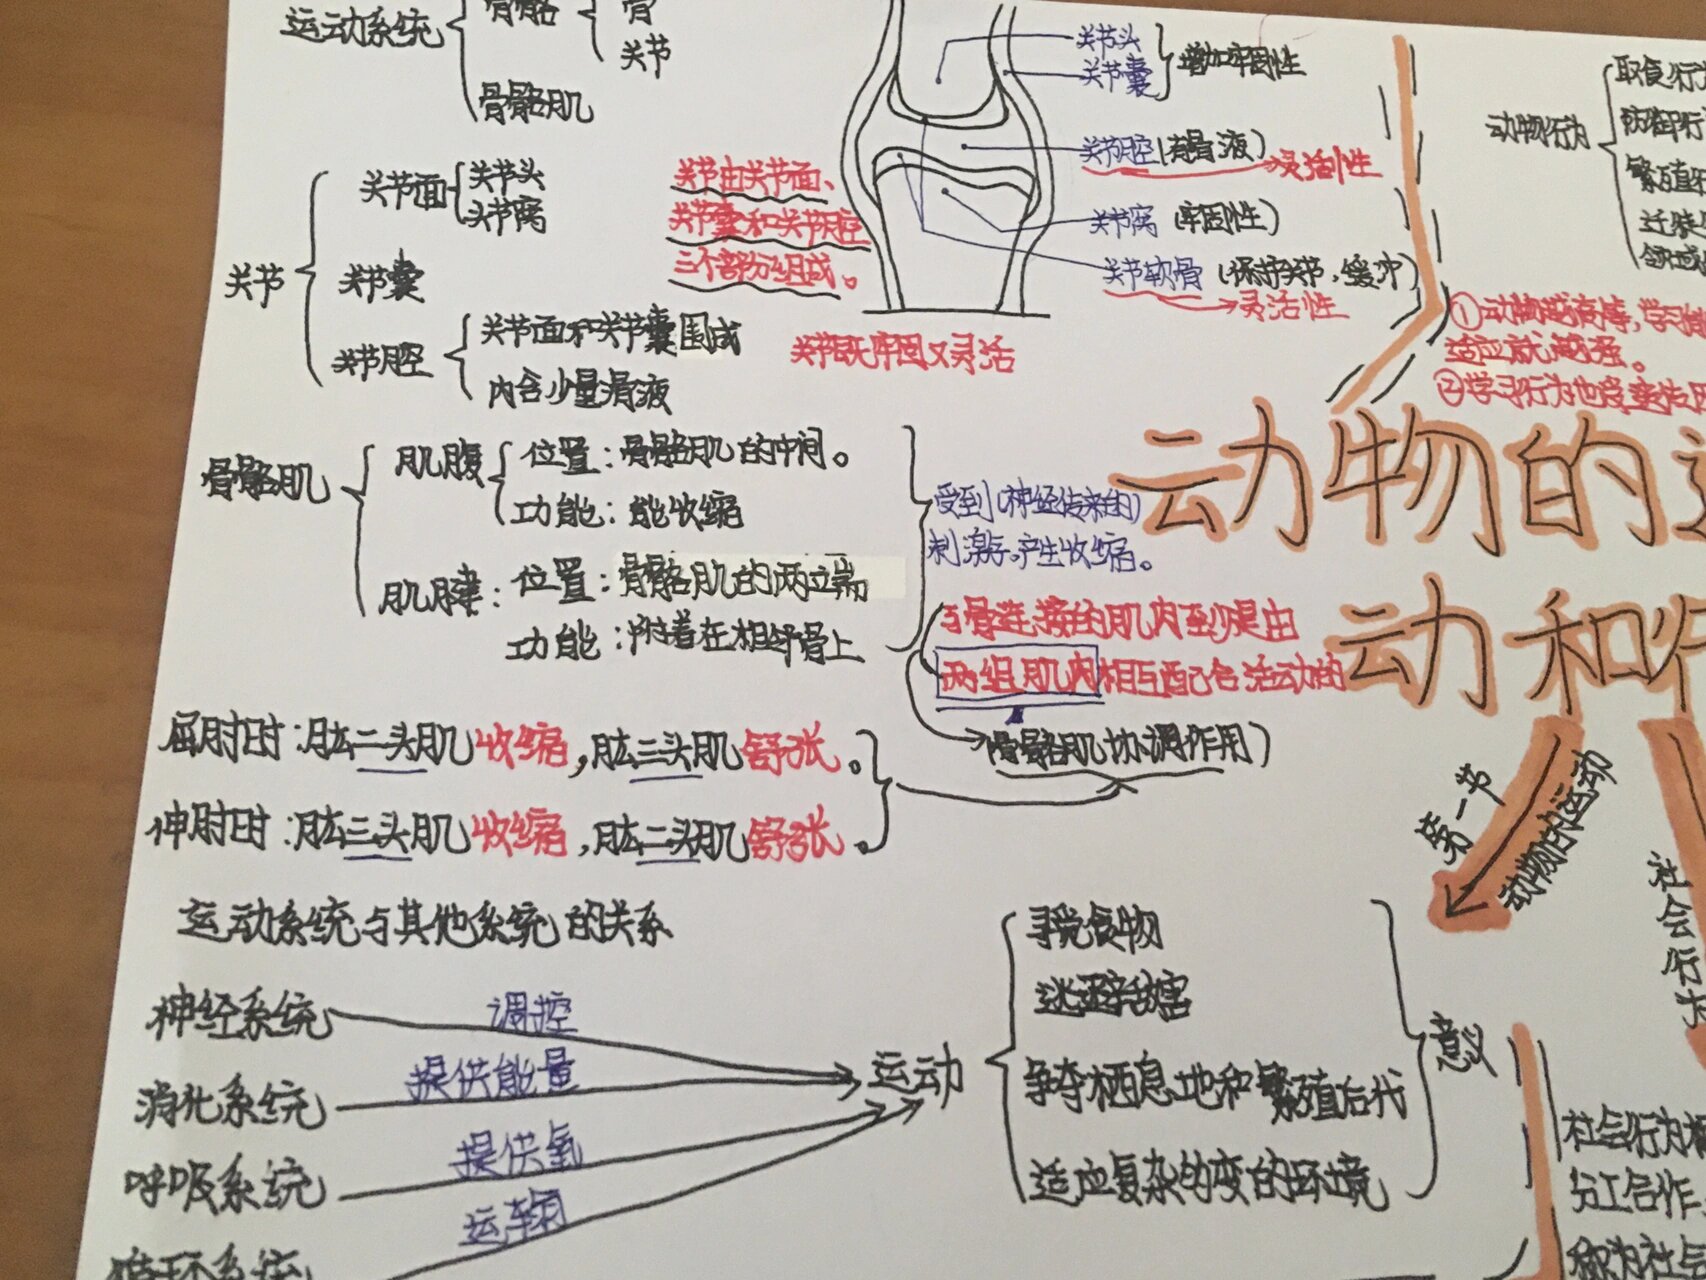 运动系统
骨骼
骨
关节
骨骼肌
关节
关节面
关节头
关节窝
关节囊
关节腔
关节面和关节囊围成
内含少量滑液
关节由关节面、
关节囊和关节腔
三个部分组成。
关节头
关节囊
增加牢固性
关节腔(有滑液)
灵活性
关节窝(牢固性)
关节软骨(保护关节,缓冲)
灵活性
关节既牢固又灵活
骨骼肌
肌腹
位置:骨骼肌的中间。
功能:能收缩
肌腱:
位置:骨骼肌的两端
功能:附着在相邻骨上
受到(神经传来的)
刺激后,产生收缩。
与骨连接的肌肉至少是由
两组肌肉相互配合活动的
(骨骼肌协调作用)
屈肘时:肱二头肌收缩,肱三头肌舒张。
伸肘时:肱三头肌收缩,肱二头肌舒张。
运动系统与其他系统的关系
神经系统
调控
消化系统
提供能量
呼吸系统
提供氧
循环系统
运输
运动
寻觅食物
逃避敌害
争夺栖息地和繁殖后代
适应复杂的变的环境
意义
动物行为
取食行
防御行
繁殖行
迁徙
领域
①动物越高等,学习
适应就越强。
②学习行为也受遗传
动物的
动和行
第一节
动物的运动
社会行
社会行为
分工合作
称为社